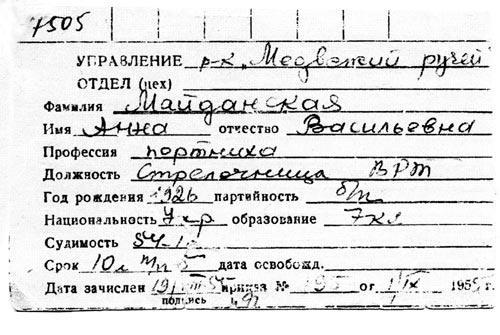 7505
УПРАВЛЕНИЕ р-к „Медвежий ручей"
ОТДЕЛ (цех)
Фамилия Майданская
Имя Анна отчество Васильевна
Профессия портниха
Должность Стрелочница ВРТ
Год рождения 1926 партийность б/п
Национальность Укр образование 7 кл
Судимость 54-1
Срок 10 л п/п 5 дата освобожд.
Дата зачислен 19/VIII 55 приказ № 195 от 1/IX 1955 г.
подпись